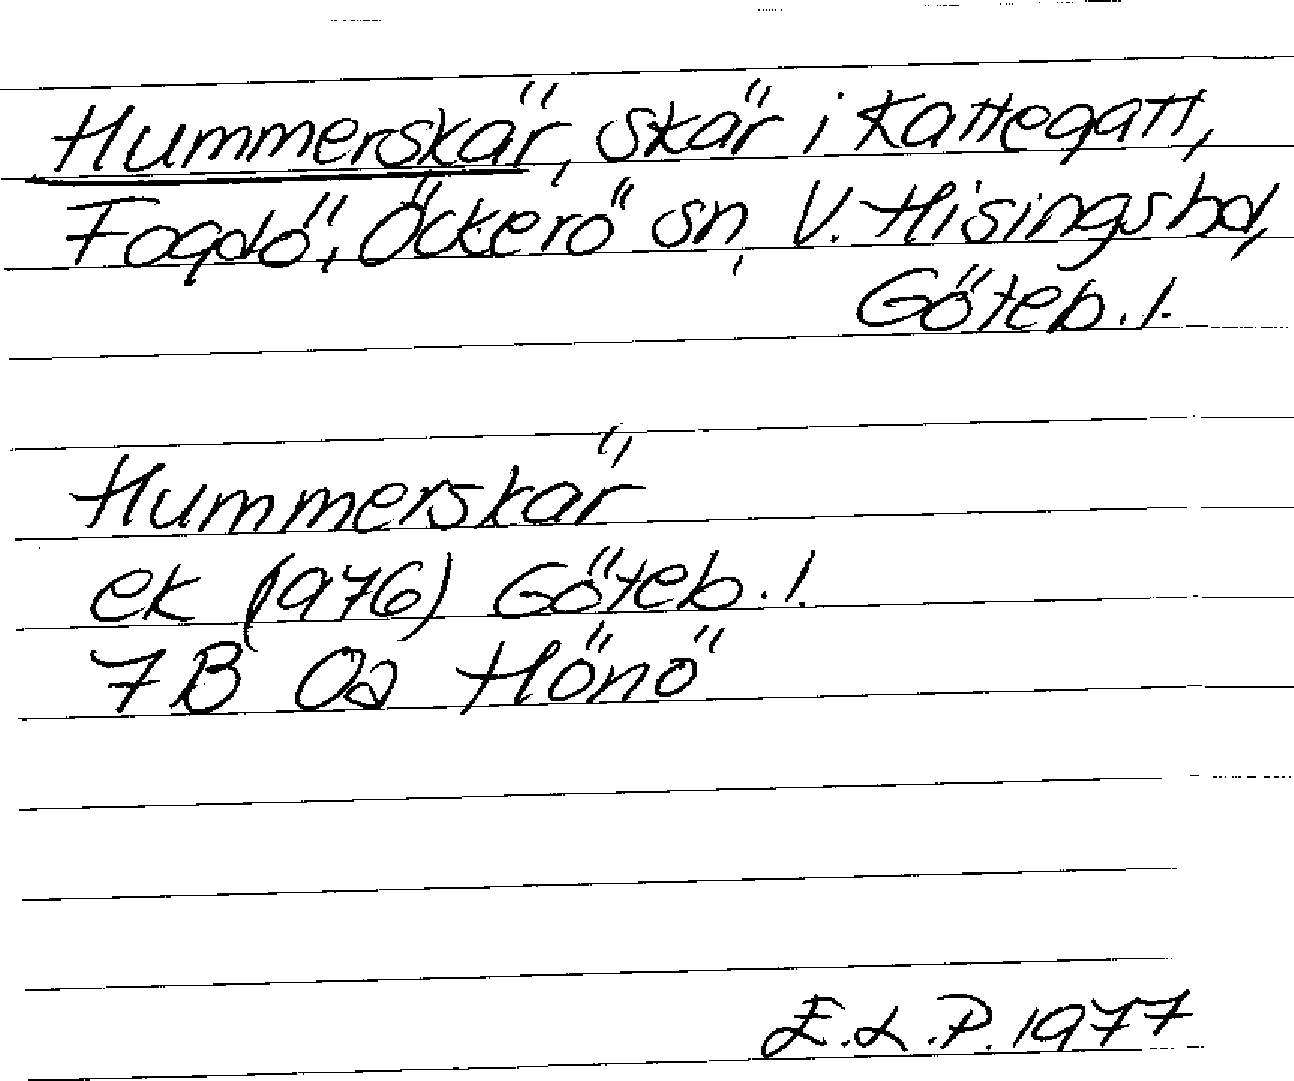 Hummerskär, skär i Kattegatt,
Fogdö, Öckerö sn, V. Hisingshd,
Göteb. l.
Hummerskär
ek (1976) Göteb. l.
7B 0a Hönö
E.L.P. 1977